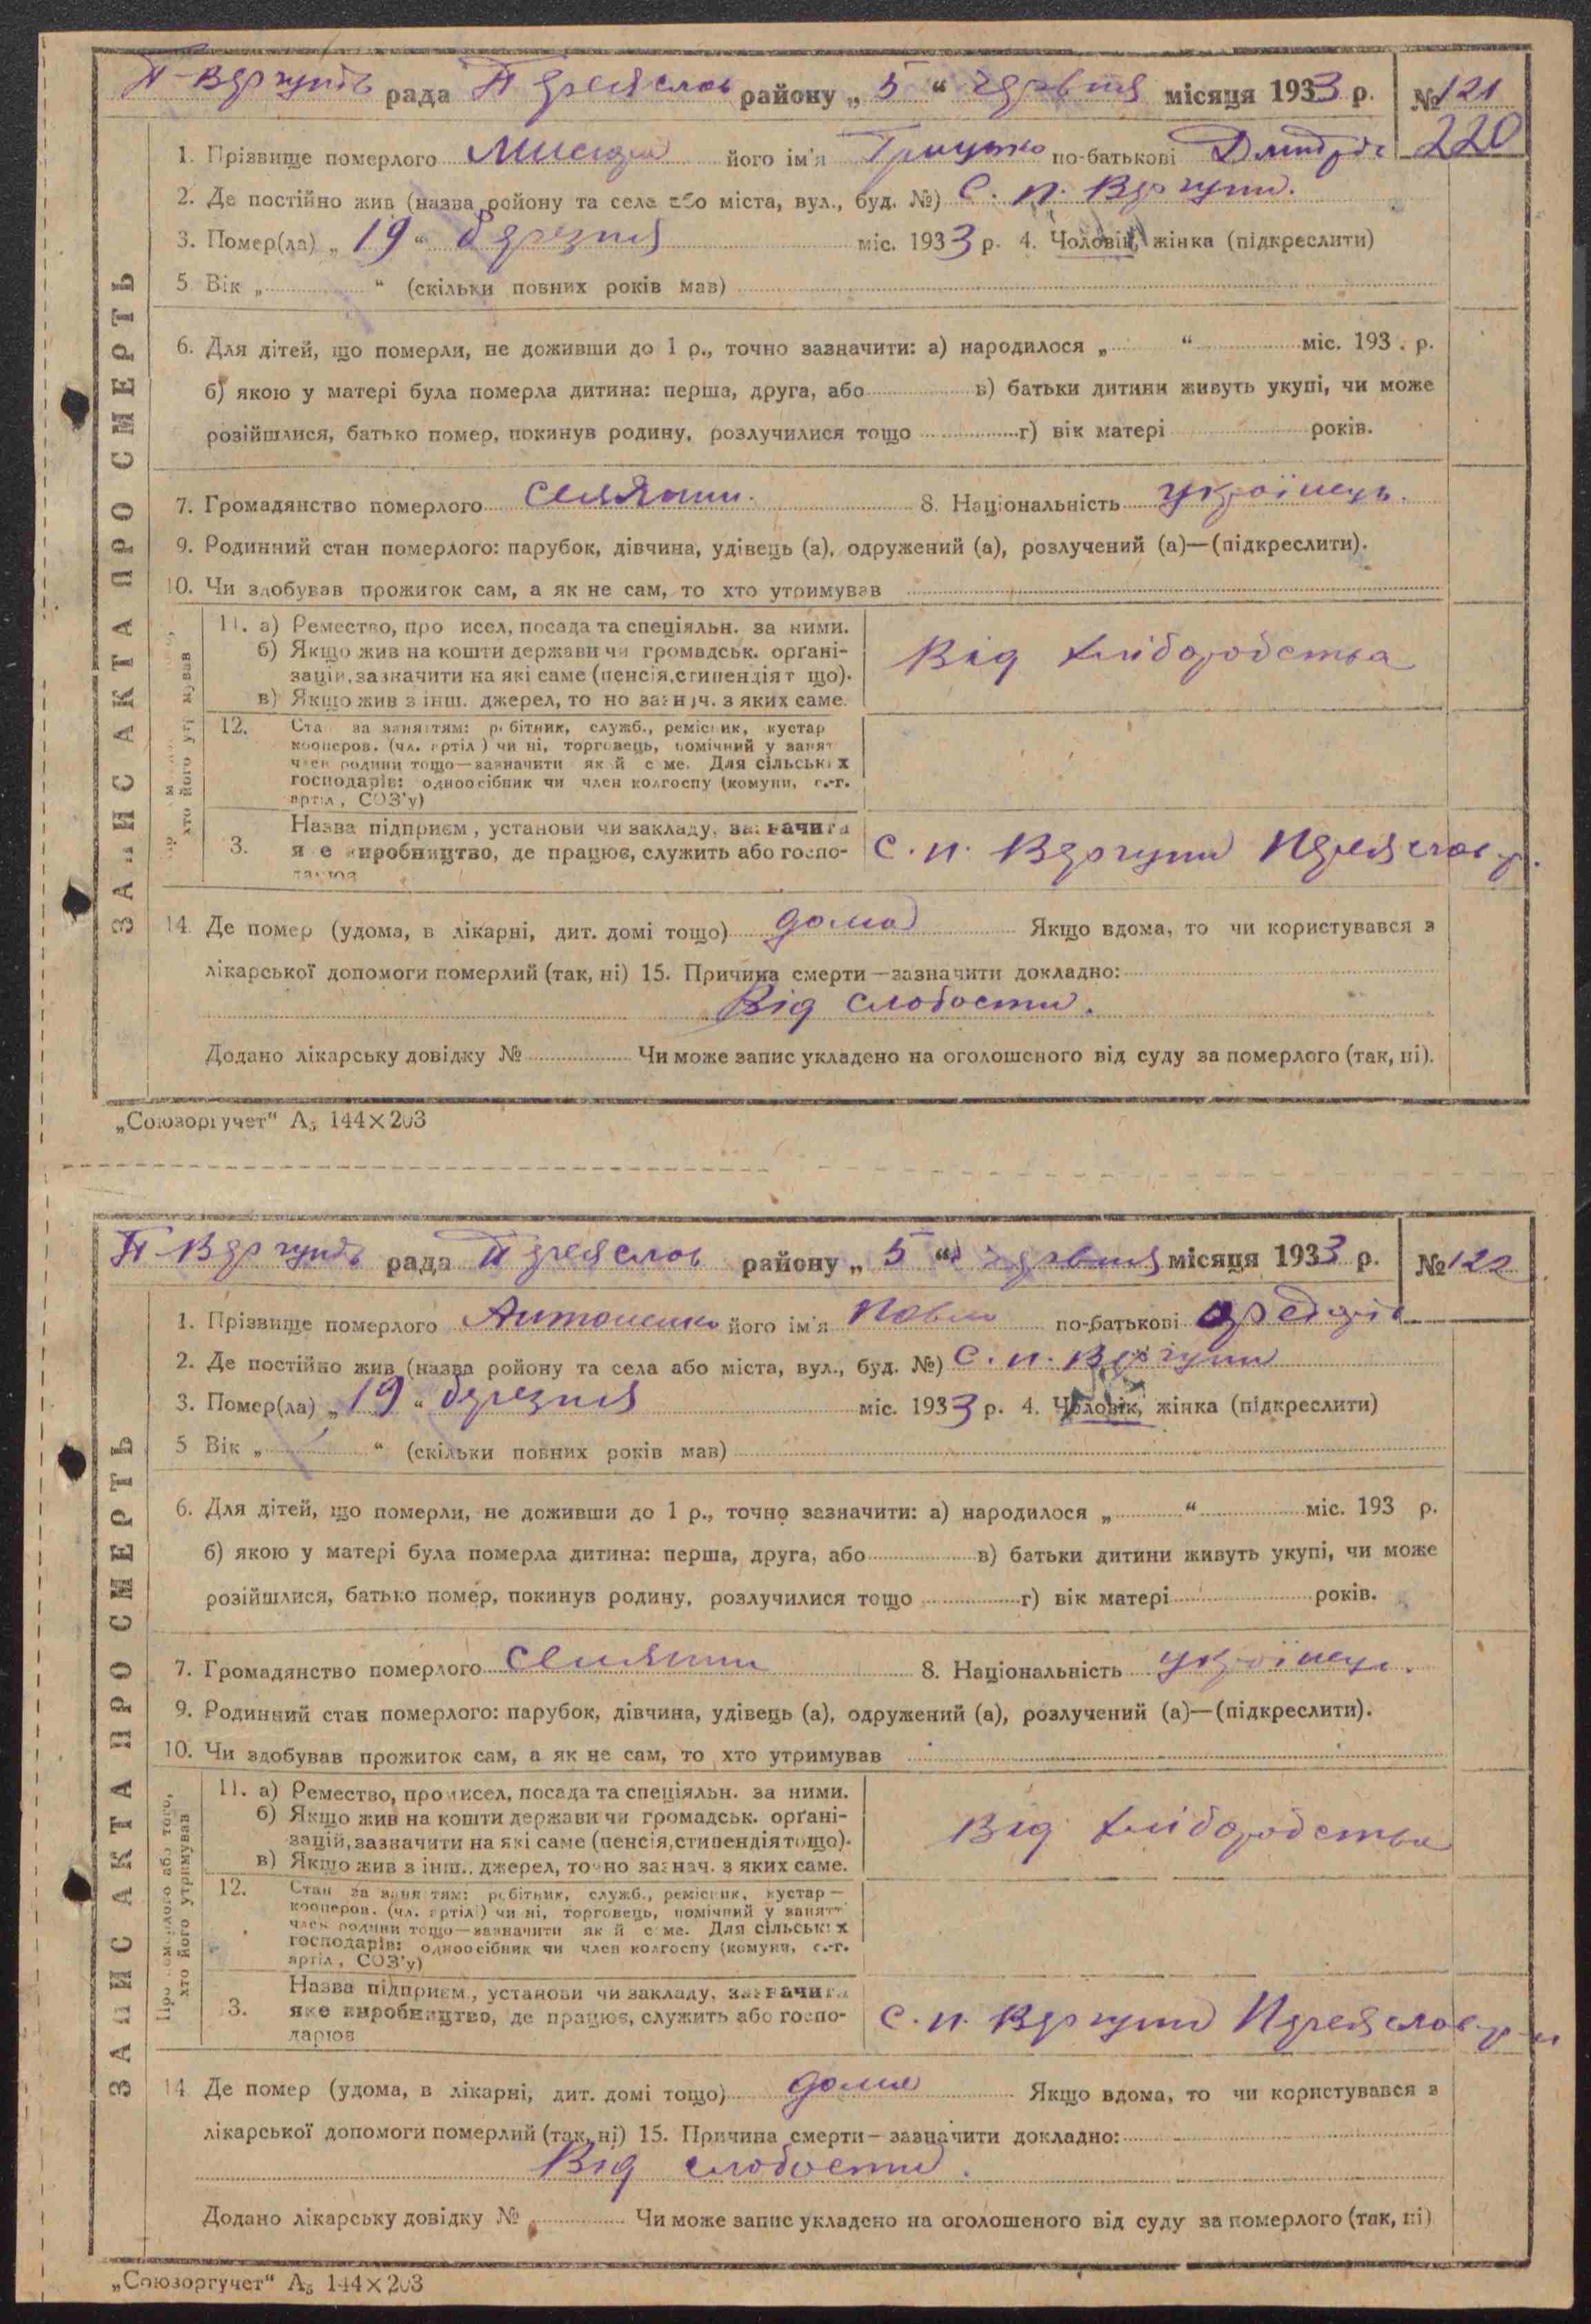 П-Вергунів рада Переяслав району „ 5 “ червня місяця 1933 р. №121
220
1. Прізвище померлого його ім'я Грицько по-батькові
2. Де постійно жив (назва ройону та села або міста, вул., буд. №) С. п. Вергуни.
3. Помер(ла) „ 19 “ березня міс. 1933 р. 4. Чоловік, жінка (підкреслити)
5 Вік „ “ (скільки повних років мав)
6. Для дітей, що померли, не доживши до 1 р., точно зазначити: а) народилося „ “ міс. 193 . р.
б) якою у матері була померла дитина: перша, друга, або в) батьки дитини живуть укупі, чи може
розійшлися, батько помер, покинув родину, розлучилися тощо г) вік матері років.
7. Громадянство померлого селянин. 8. Національність українець.
9. Родинний стан померлого: парубок, дівчина, удівець (а), одружений (а), розлучений (а)—(підкреслити).
10. Чи здобував прожиток сам, а як не сам, то хто утримував
11. а) Ремество, про исел, посада та спеціяльн. за ними.
б) Якщо жив на кошти держави чи громадськ. орґані-
зацій, зазначити на які саме (пенсія, стипендія т що).
в) Якщо жив з інш. джерел, то но зазнач. з яких саме.
Від хліборобства
12. Ста за заняттям: робітник, служб., ремісник, кустар
кооперов. (чл. артіл ) чи ні, торговець, помічний у занят
член родини тощо—зазначити як й с ме. Для сільських
господарів: одноосібник чи член колгоспу (комуни, с.-г.
артіл , СОЗ'у)
3. Назва підприєм , установи чи закладу, зазначити
я е виробництво, де працює, служить або госпо-
дарює
С. п. Вергуни Переяслав р.
ЗАПИС АКТА ПРО СМЕРТЬ
14. Де помер (удома, в лікарні, дит. домі тощо) дома Якщо вдома, то чи користувався з
лікарської допомоги померлий (так, ні) 15. Причина смерти—зазначити докладно:
Від слабости.
Додано лікарську довідку № Чи може запис укладено на оголошеного від суду за померлого (так, ні).
„Союзоргучет“ А₅ 144×203
П-Вергунів рада Переяслав району „ 5 “ червня місяця 1933 р. №122
1. Прізвище померлого Антоненко його ім'я Павло по-батькові
2. Де постійно жив (назва ройону та села або міста, вул., буд. №) С. п. Вергуни
3. Помер(ла) „ 19 “ березня міс. 1933 р. 4. Чоловік, жінка (підкреслити)
5 Вік „ “ (скільки повних років мав)
6. Для дітей, що померли, не доживши до 1 р., точно зазначити: а) народилося „ “ міс. 193 р.
б) якою у матері була померла дитина: перша, друга, або в) батьки дитини живуть укупі, чи може
розійшлися, батько помер, покинув родину, розлучилися тощо г) вік матері років.
7. Громадянство померлого селянин 8. Національність українець.
9. Родинний стан померлого: парубок, дівчина, удівець (а), одружений (а), розлучений (а)—(підкреслити).
10. Чи здобував прожиток сам, а як не сам, то хто утримував
Про померлого або того,
хто його утримував
11. а) Ремество, промисел, посада та спеціяльн. за ними.
б) Якщо жив на кошти держави чи громадськ. орґані-
зацій, зазначити на які саме (пенсія, стипендія тощо).
в) Якщо жив з інш. джерел, точно зазнач. з яких саме.
Від хліборобства
12. Стан за заняттям: робітник, служб., ремісник, кустар—
кооперов. (чл. артілі) чи ні, торговець, помічний у занятт
член родини тощо—зазначити як й с ме. Для сільських
господарів: одноосібник чи член колгоспу (комуни, с.-г.
артіл , СОЗ'у)
3. Назва підприєм., установи чи закладу, зазначити
яке виробництво, де працює, служить або госпо-
дарює
С. п. Вергуни Переяслав р-н
ЗАПИС АКТА ПРО СМЕРТЬ
14 Де помер (удома, в лікарні, дит. домі тощо) дома Якщо вдома, то чи користувався з
лікарської допомоги померлий (так, ні) 15. Причина смерти—зазначити докладно:
Від слабости.
Додано лікарську довідку № Чи може запис укладено на оголошеного від суду за померлого (так, ні)
„Союзоргучет“ А₅ 144×203